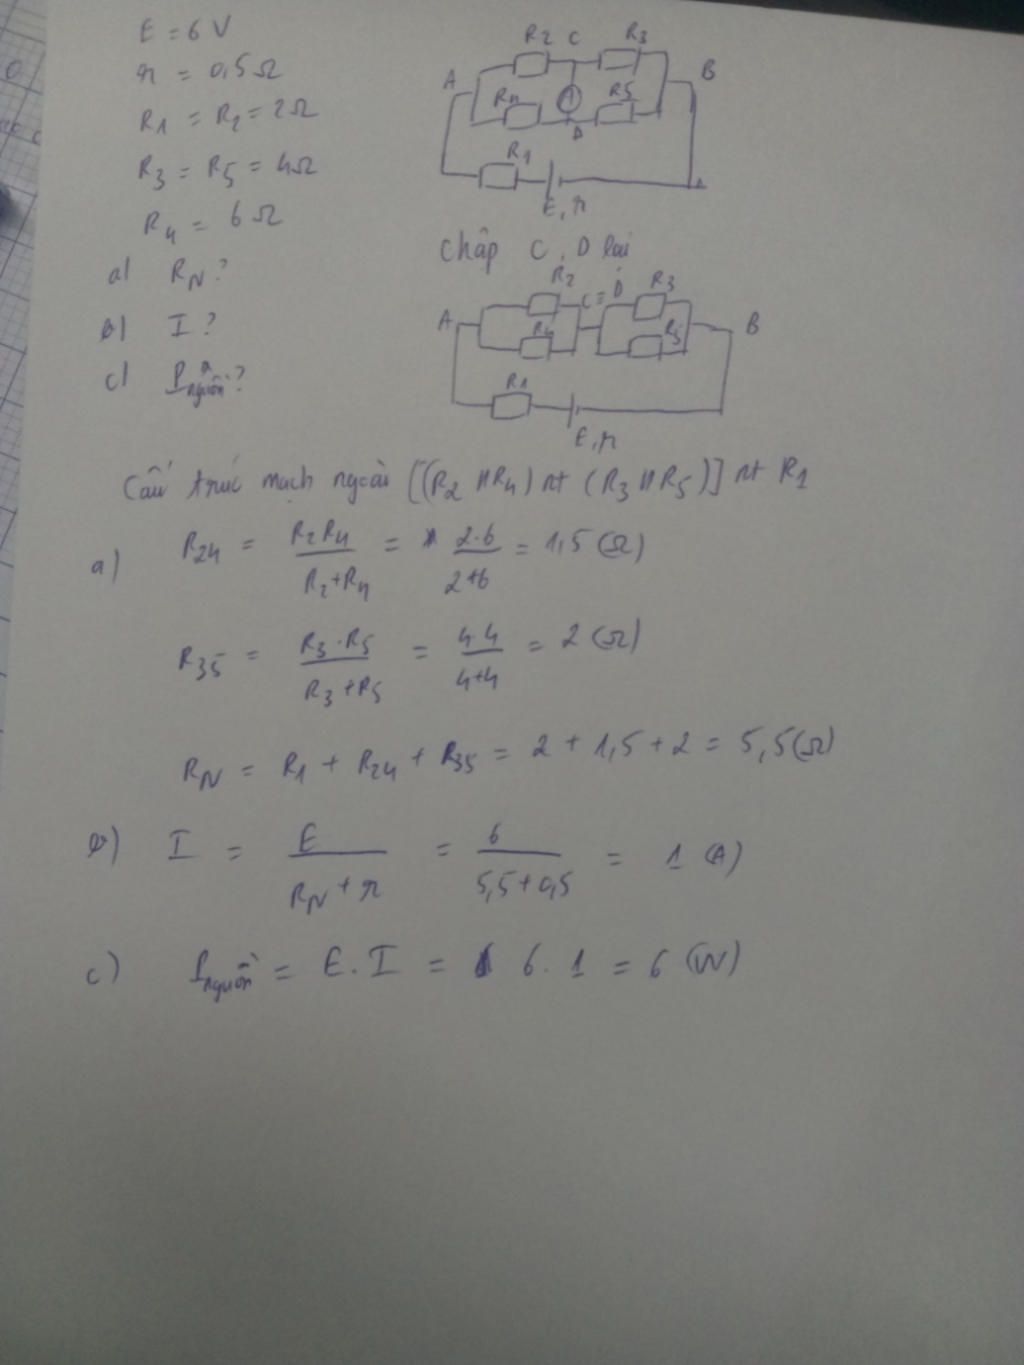 E = 6 V
r = 0,5 Ω
R1 = R2 = 2Ω
R3 = R5 = 4Ω
R4 = 6 Ω
a) RN?
b) I?
c) Pnguồn?
R2 C R3
A B
R4 A R5
D
R1
E, r
Chập C, D lại
R2 C≡D R3
A B
R4 R5
R1
E, r
Cấu trúc mạch ngoài [(R2 // R4) nt (R3 // R5)] nt R1
a) R24 = R2R4 / (R2+R4) = 2·6 / (2+6) = 1,5 (Ω)
R35 = R3·R5 / (R3+R5) = 4·4 / (4+4) = 2 (Ω)
RN = R1 + R24 + R35 = 2 + 1,5 + 2 = 5,5 (Ω)
b) I = E / (RN + r) = 6 / (5,5+0,5) = 1 (A)
c) Pnguồn = E.I = 6.1 = 6 (W)